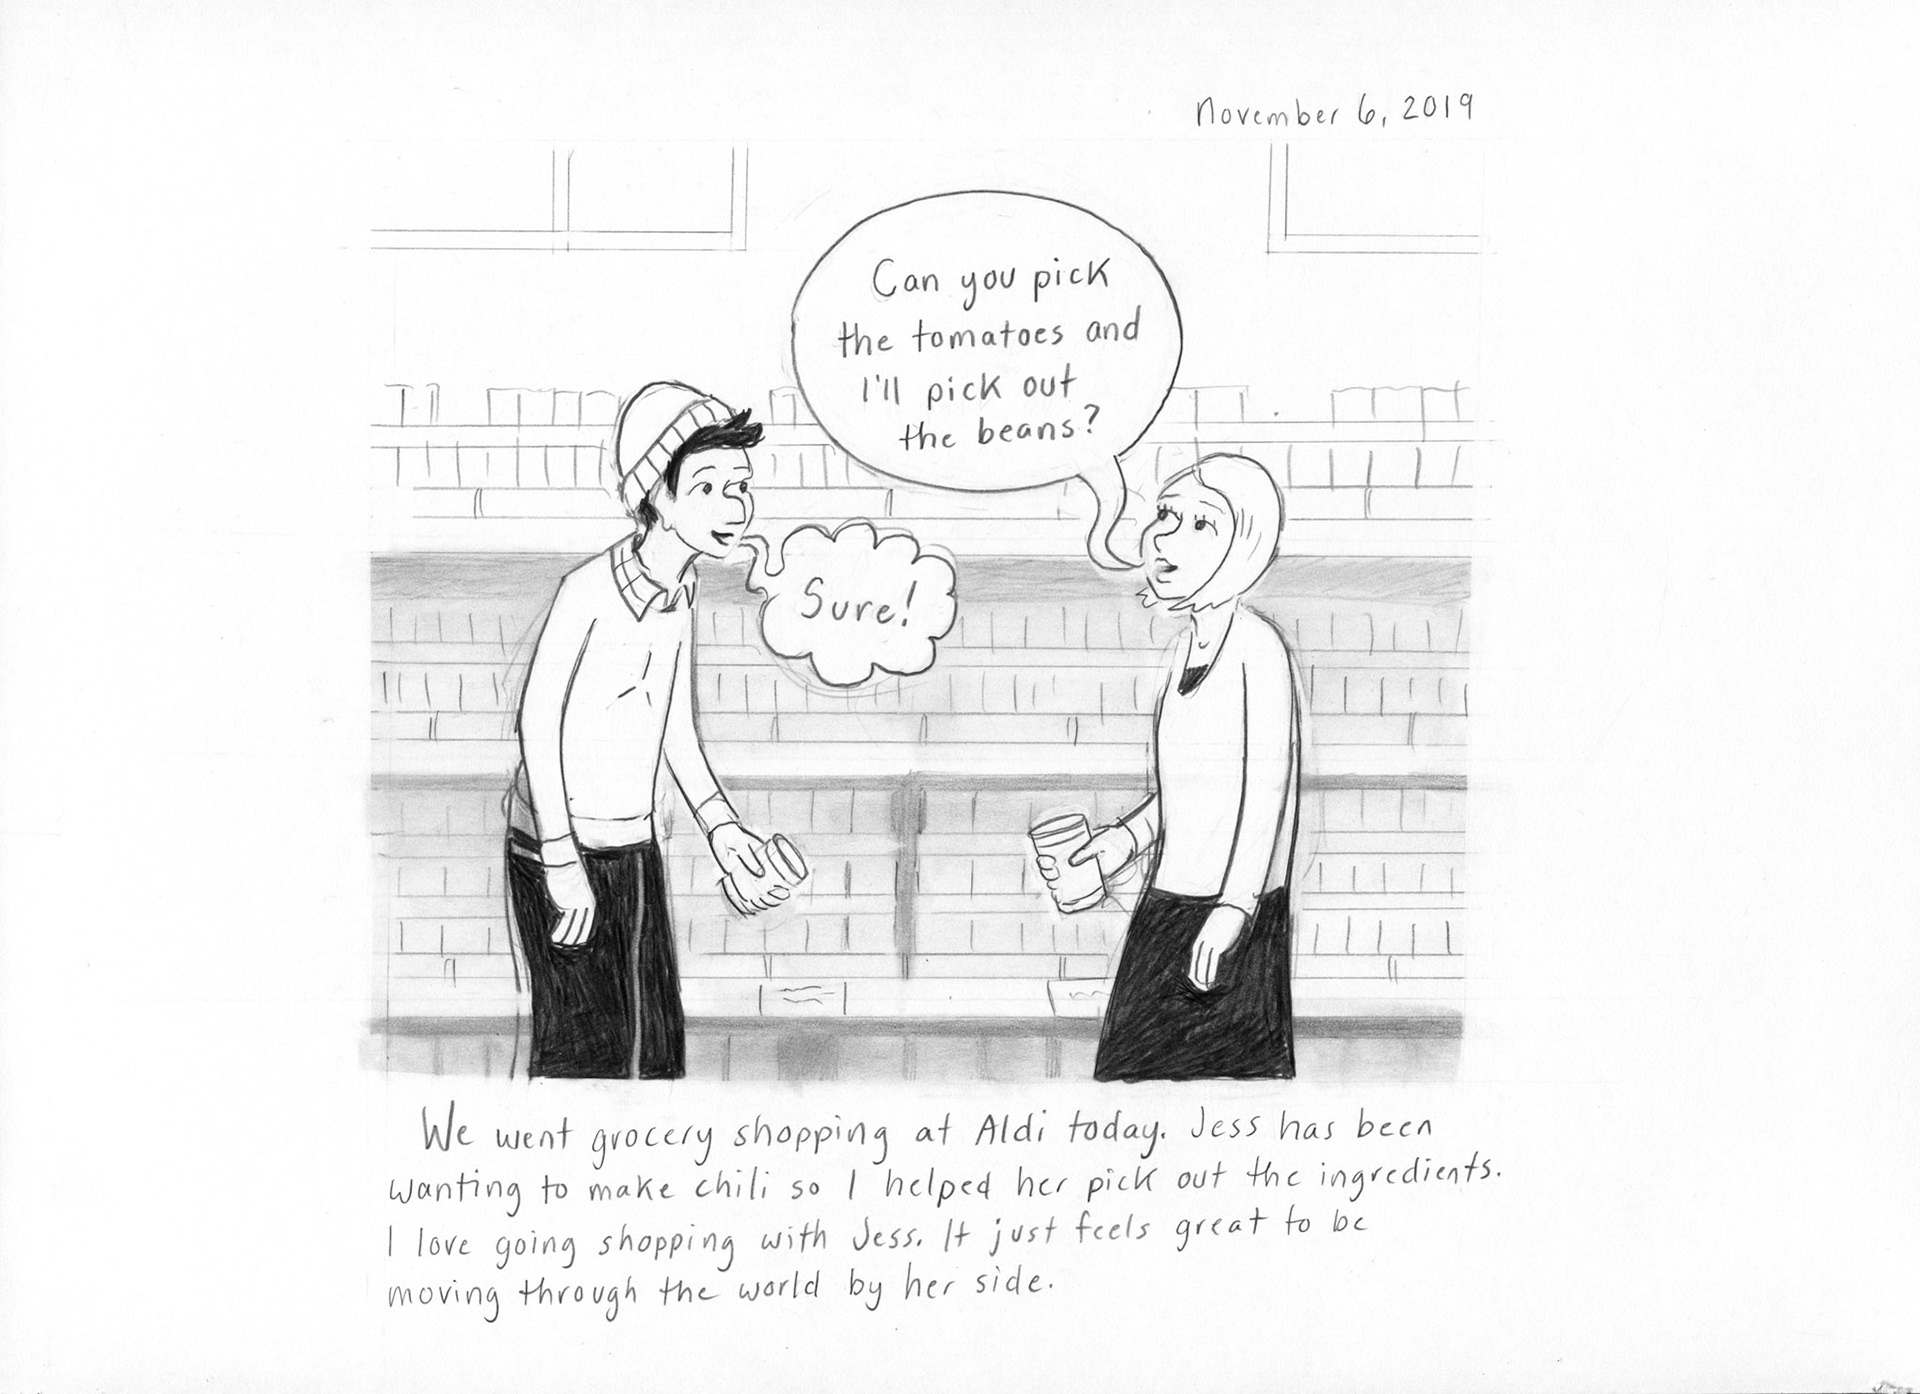 November 6, 2019
Can you pick
the tomatoes and
I'll pick out
the beans?
Sure!
We went grocery shopping at Aldi today. Jess has been
wanting to make chili so I helped her pick out the ingredients.
I love going shopping with Jess. It just feels great to be
moving through the world by her side.